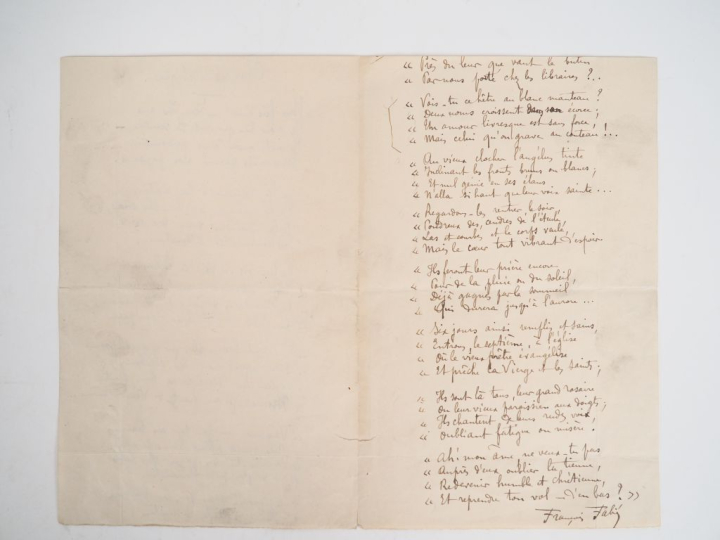 « Près du leur que vaut le butin
« Par nous porté chez les libraires ?..
« Vois-tu ce hêtre au blanc manteau ?
« Deux noms croissent dans son écorce ;
« Un amour livresque est sans force,
« Mais celui qu'on grave au couteau !...
« Au vieux clocher l'angélus tinte
« Inclinant les fronts bruns ou blancs ;
« Et nul génie en ses élans
« N'alla si haut que leur voix sainte...
« Regardons-les rentrer le soir,
« Poudreux des cendres de l'éteule,
« Las et courbés et le corps veule,
« Mais le cœur tout vibrant d'espoir
« Ils feront leur prière encore
« Pour de la pluie ou du soleil,
« Déjà gagnés par le sommeil
« Qui durera jusqu'à l'aurore...
« Six jours ainsi remplis et sains,
« Entrons, le septième, à l'église
« Où le vieux prêtre évangélise
« Et prêche la Vierge et les saints ;
« Ils sont là tous, leur grand rosaire
« Ou leur vieux paroissien aux doigts ;
« Ils chantent de leurs rudes voix,
« Oubliant fatigue ou misère.
« Ah ! mon âme ne veux-tu pas
« Auprès d'eux oublier la tienne,
« Redevenir humble et chrétienne,
« Et reprendre ton vol – d'en bas ? »
François Fabié